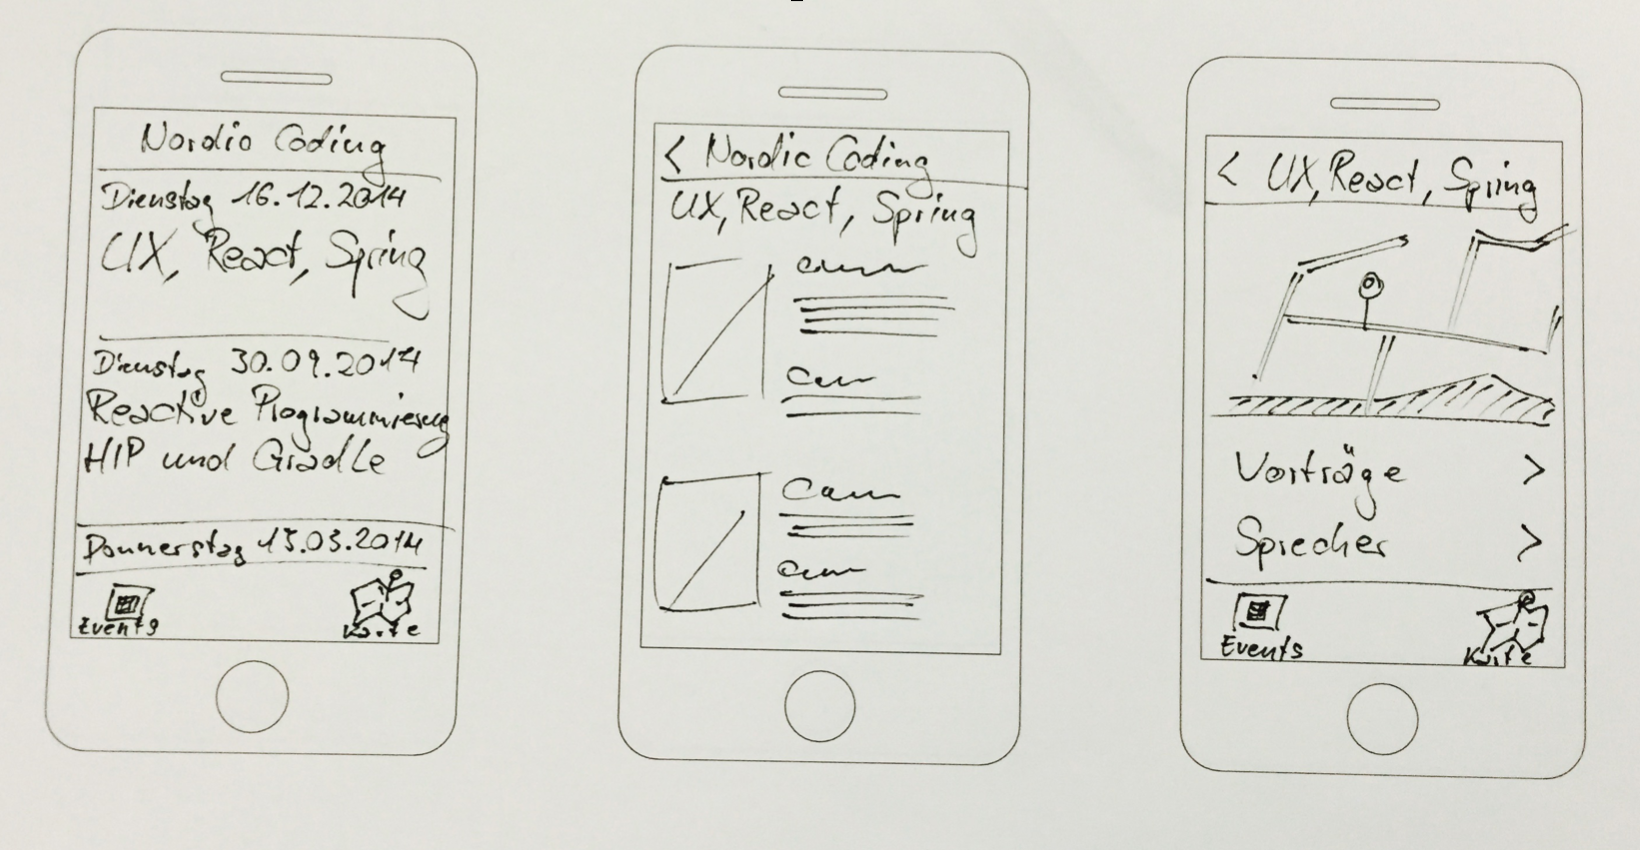 Nordic Coding
Dienstag 16.12.2014
UX, React, Spring
Dienstag 30.09.2014
Reactive Programmierung
HIP und Gradle
Donnerstag 13.03.2014
Events
Karte
< Nordic Coding
UX, React, Spring
< UX, React, Spring
Vorträge >
Sprecher >
Events
Karte